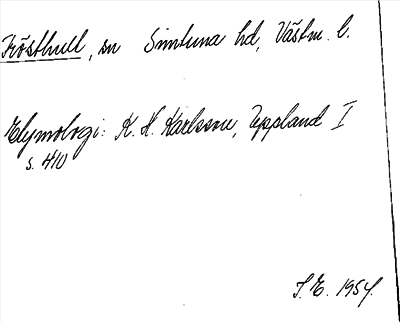 Frösthull, sn Simtuna hd, Västm. l.
Etymologi: K. H. Karlsson, Uppland I
s. 410
S. E. 1954.